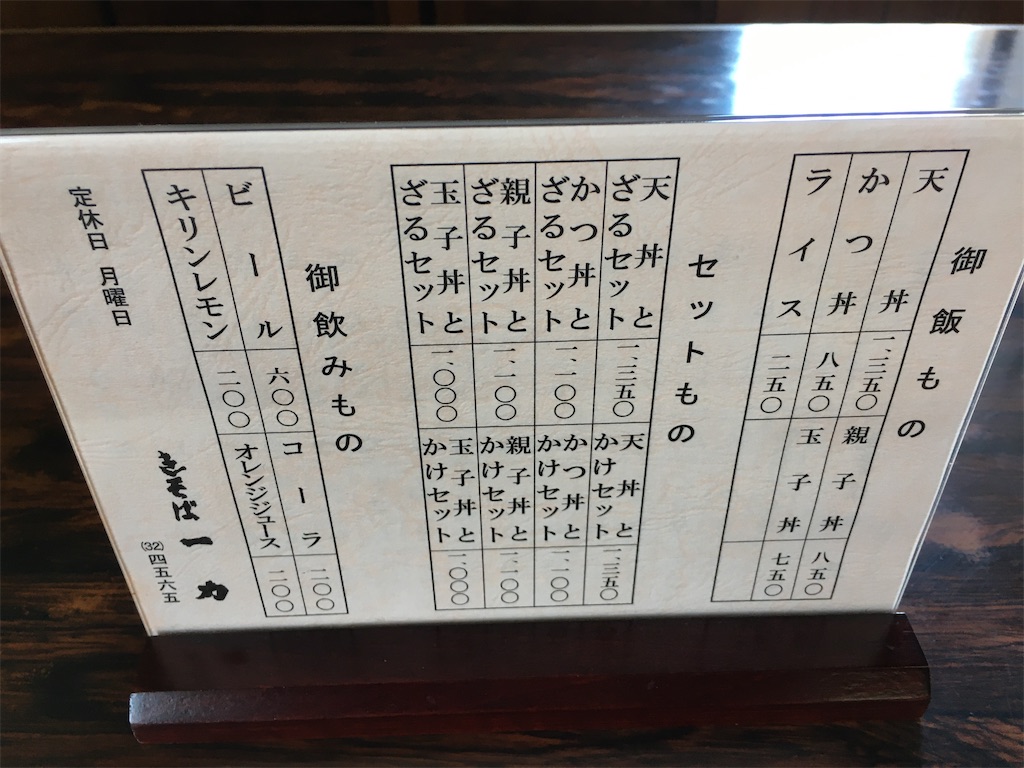 御飯もの
天丼 一、三五〇
親子丼 八五〇
かつ丼 八五〇
玉子丼 七五〇
ライス 二五〇
セットもの
天丼と
ざるセット 一、三五〇
天丼と
かけセット 一、三五〇
かつ丼と
ざるセット 一、一〇〇
かつ丼と
かけセット 一、一〇〇
親子丼と
ざるセット 一、一〇〇
親子丼と
かけセット 一、一〇〇
玉子丼と
ざるセット 一、〇〇〇
玉子丼と
かけセット 一、〇〇〇
御飲みもの
ビール 六〇〇
コーラ 二〇〇
キリンレモン 二〇〇
オレンジジュース 二〇〇
定休日 月曜日
きそば 一力
(32)四五六五